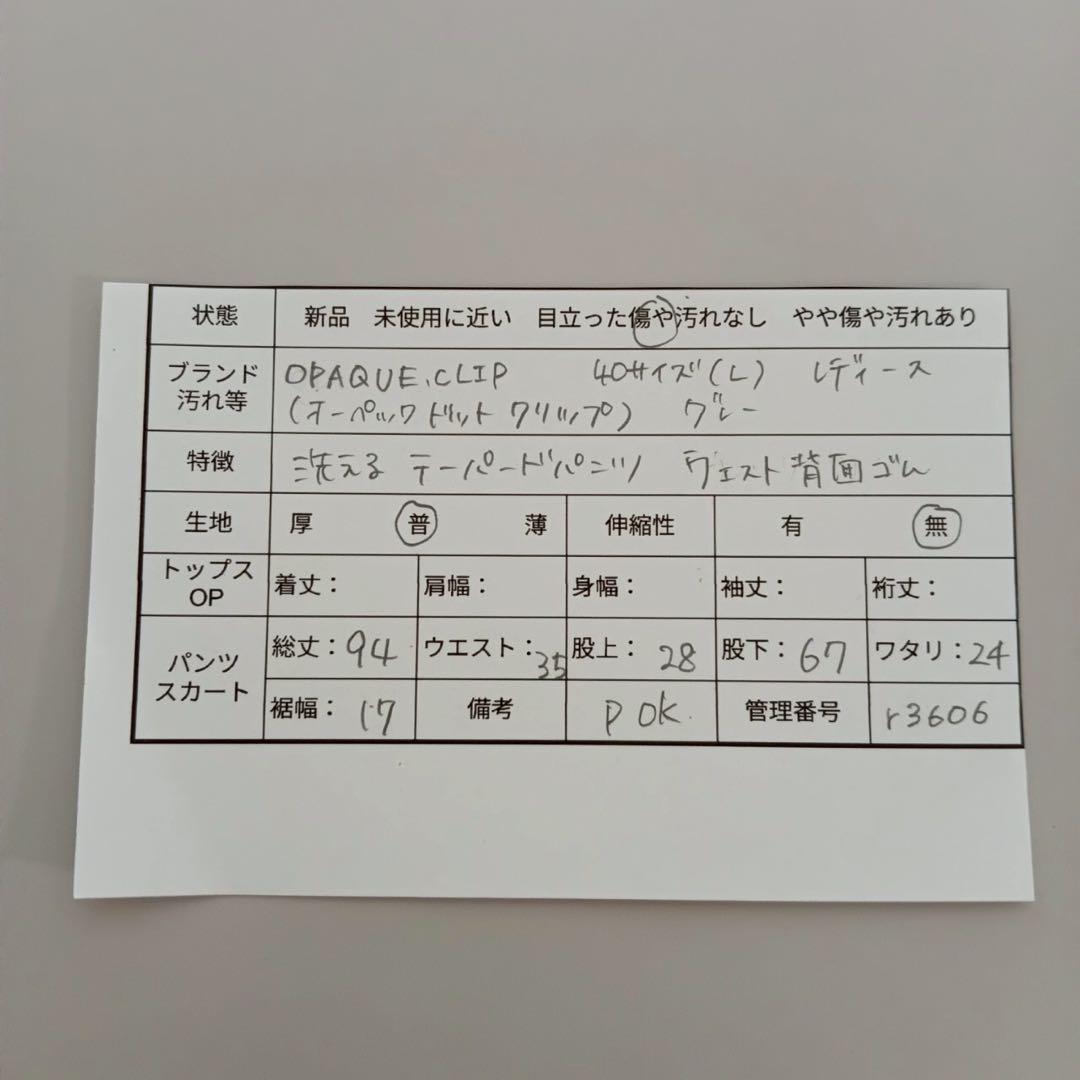 状態 新品 未使用に近い 目立った傷や汚れなし やや傷や汚れあり
ブランド 汚れ等 OPAQUE.CLIP 40サイズ(L) レディース
(オーペックドットクリップ) グレー
特徴 洗える テーパードパンツ ウェスト背面ゴム
生地 厚 普 薄 伸縮性 有 無
トップス OP 着丈: 肩幅: 身幅: 袖丈: 裄丈:
パンツ スカート 総丈:94 ウエスト:35 股上:28 股下:67 ワタリ:24
裾幅:17 備考 P OK. 管理番号 r3606